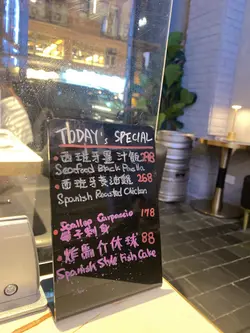 TODAY's SPECIAL
西班牙墨汁飯 298
Seafood Black Paella
西班牙 油雞 268
Spanish Roasted Chicken
Scallop Carpaccio 178
帶子刺身
炸馬介休球 88
Spanish Style Fish Cake